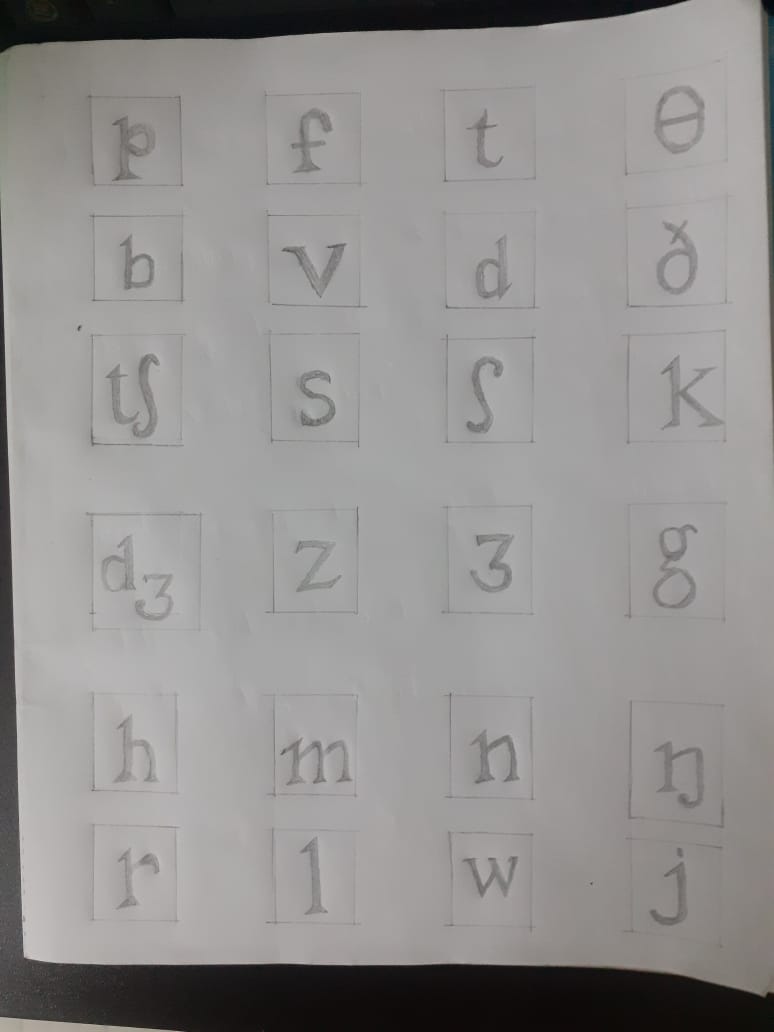 p f t θ
b v d ð
tʃ s ʃ k
dʒ z ʒ g
h m n ŋ
r l w j